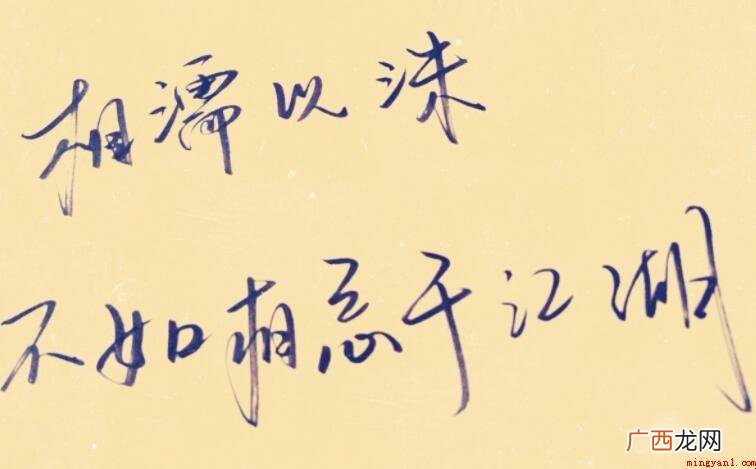 相濡以沫
不如相忘于江湖
广西龙网
mingyan1.com